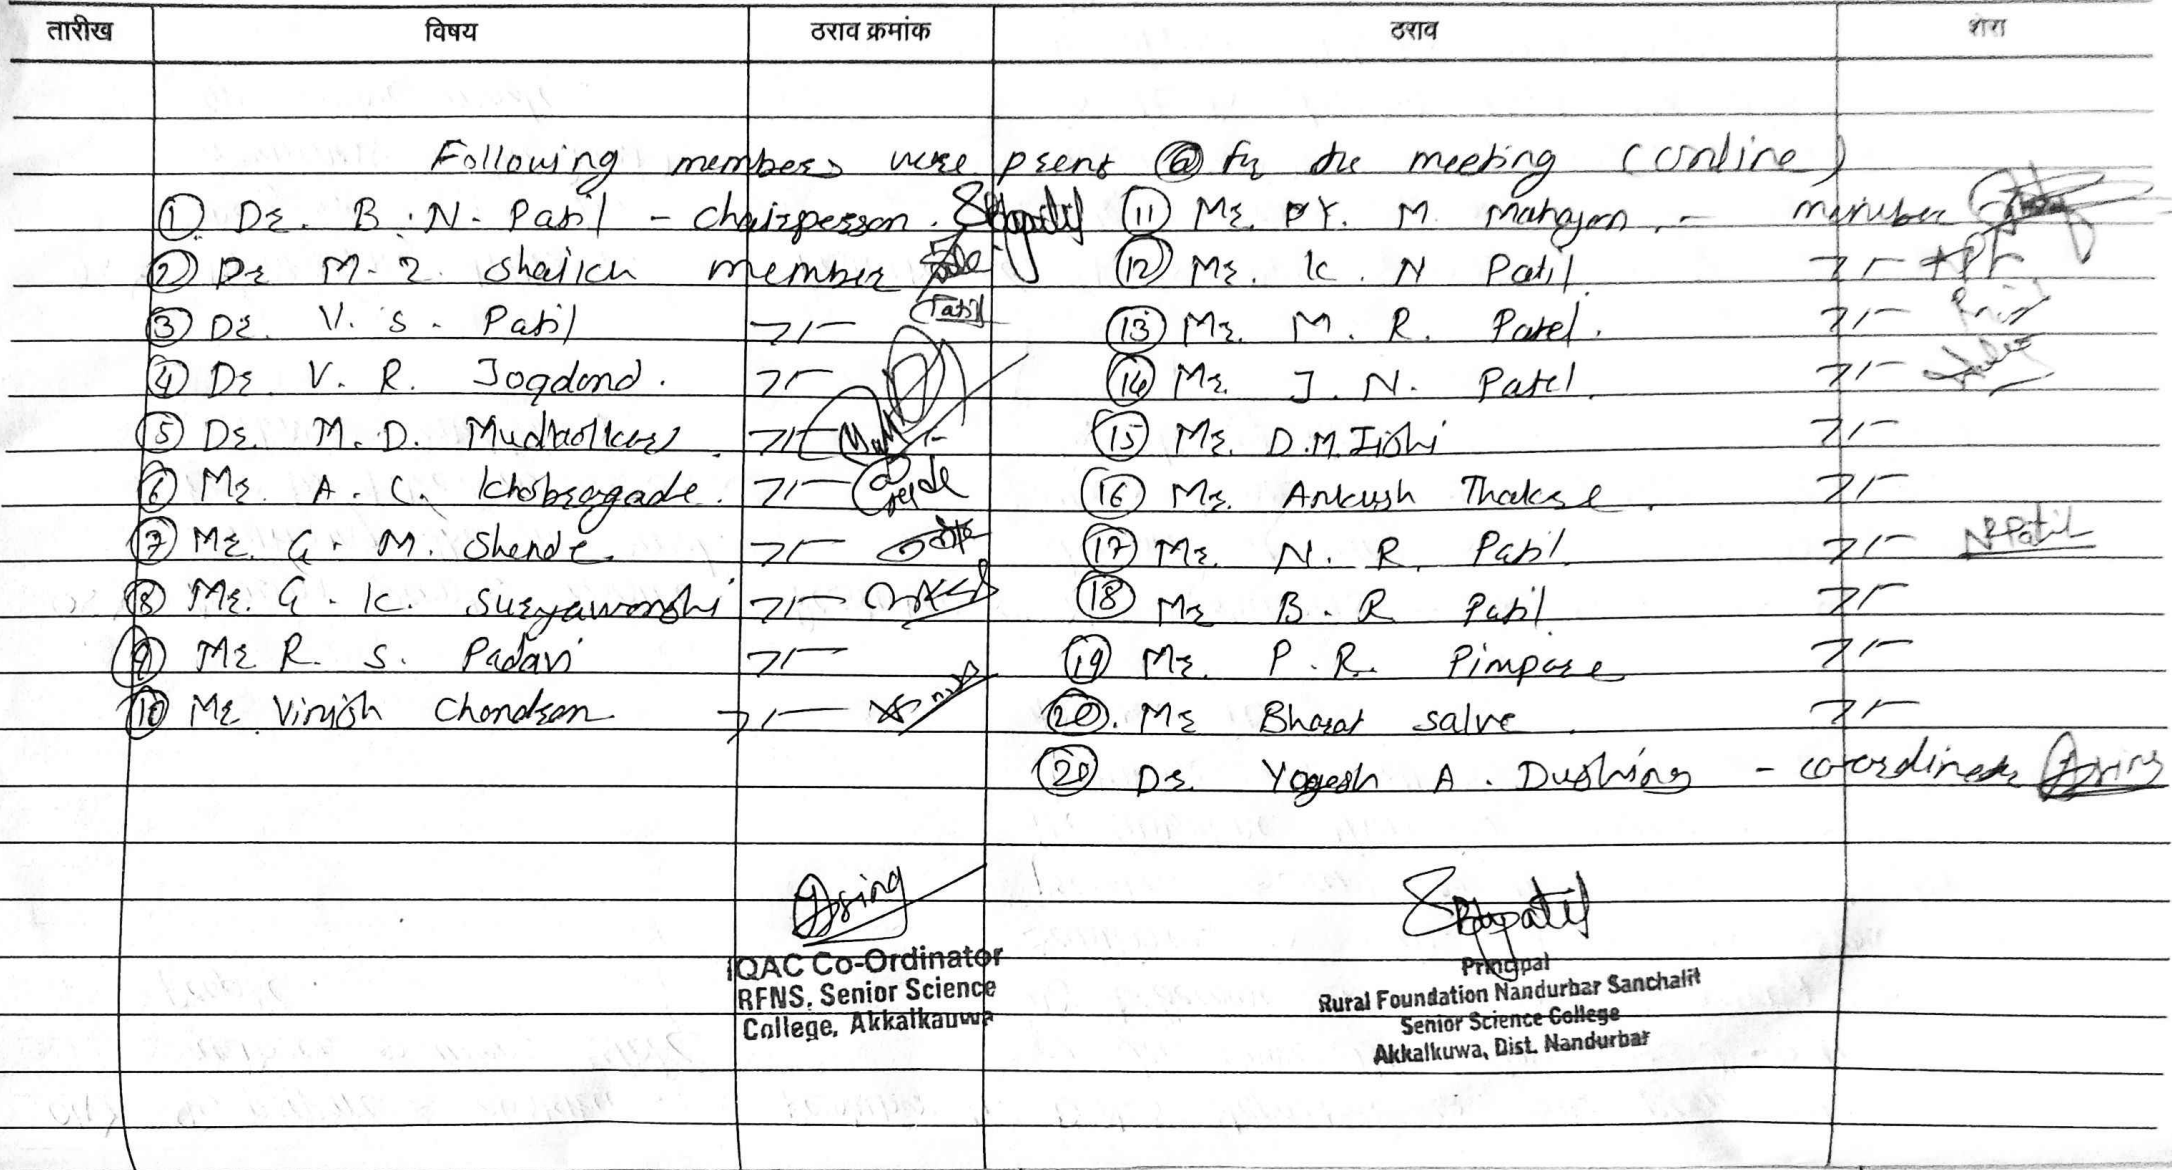 तारीख विषय ठराव क्रमांक ठराव शेरा
Following members were psent @ fr the meeting (online)
① Dr. B. N. Patil - Chairperson.
② Dr M. Z. Shaikh member
③ Dr. V. S. Patil -//-
④ Dr V. R. Jogdand. -//-
⑤ Dr. M. D. Mudholkar. -//-
⑥ Mr. A. C. Khobragade. -//-
⑦ Mr. G. M. Shende. -//-
⑧ Mr. G. K. Suryawanshi -//-
⑨ Mr R. S. Padavi -//-
⑩ Mr Virjish Chandran -//-
⑪ Mr. Y. M. Mahajan. - member
⑫ Mr. K. N Patil -//-
⑬ Mr. M. R. Patel. -//-
⑭ Mr. J. N. Patel. -//-
⑮ Mr. D.M. Irshi -//-
⑯ Mr. Ankush Thakare. -//-
⑰ Mr. N. R. Patil -//- NRPatil
⑱ Mr B. R Patil. -//-
⑲ Mr. P. R. Pimpare -//-
⑳. Mr Bharat Salve. -//-
Dr. Yogesh A. Dushing - co-ordinator
IQAC Co-Ordinator
RFNS, Senior Science
College, Akkalkauwa
Principal
Rural Foundation Nandurbar Sanchalit
Senior Science College
Akkalkuwa, Dist. Nandurbar